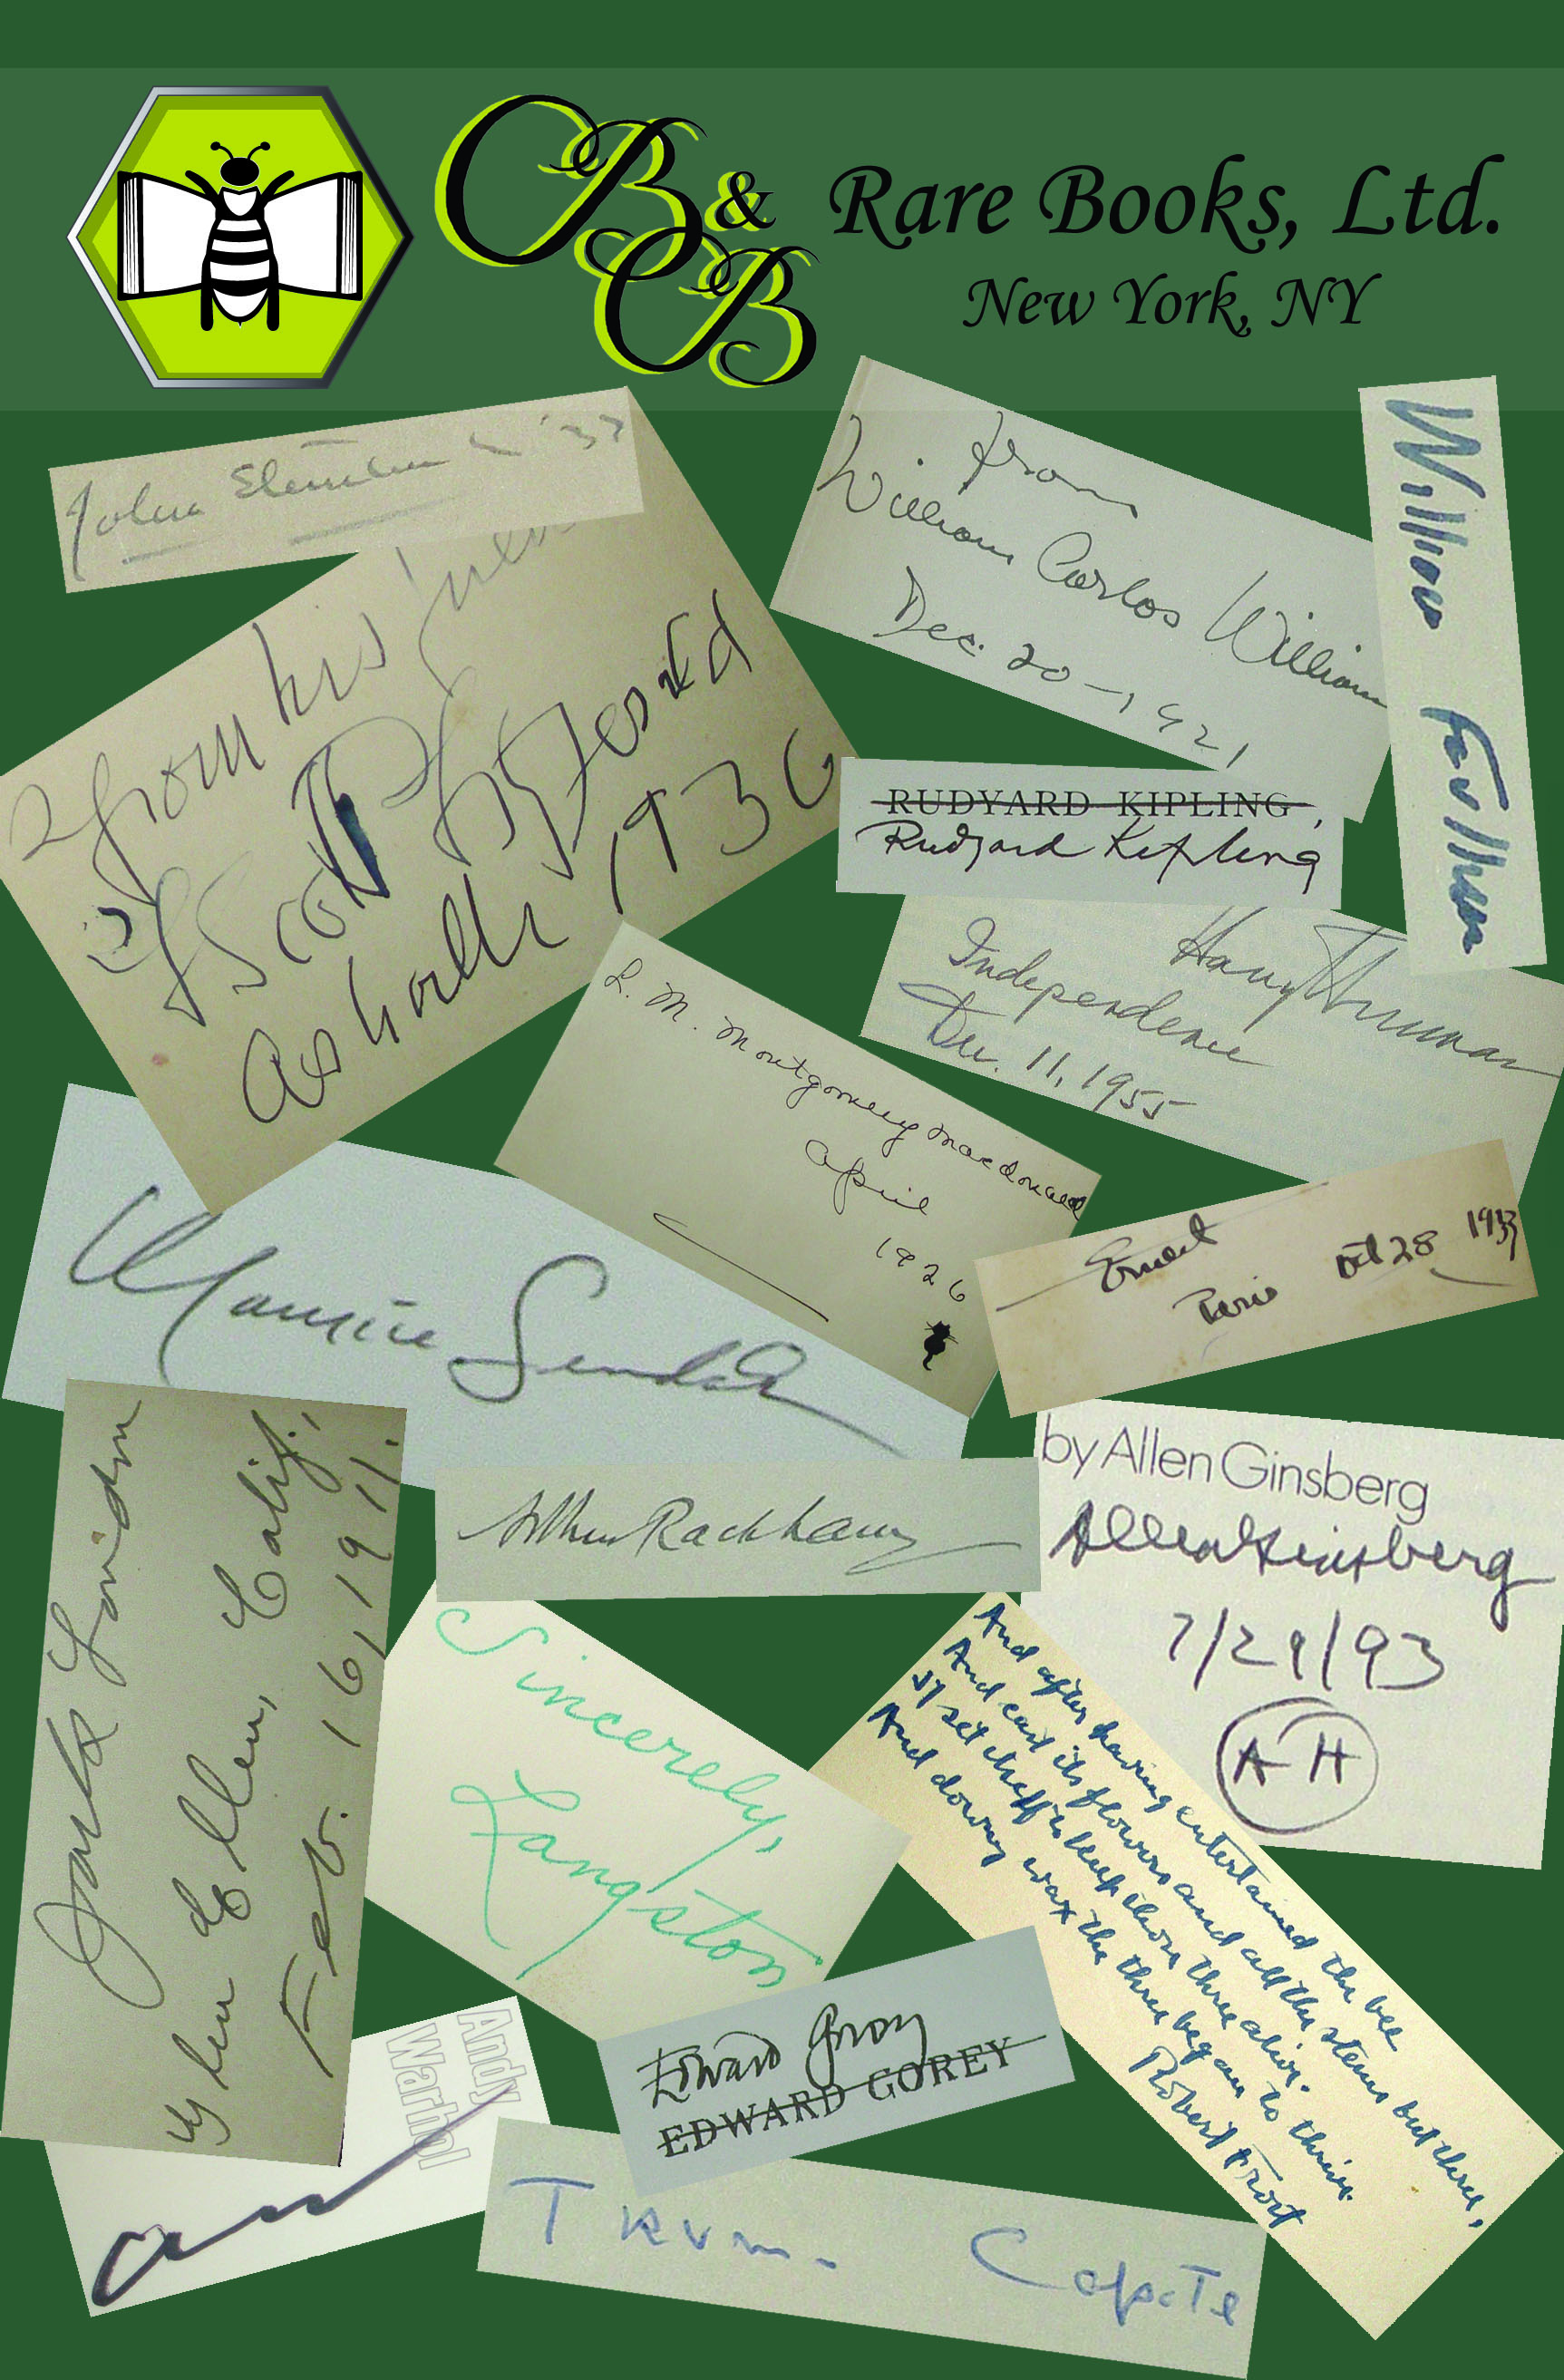 CB & CB
Rare Books, Ltd.
New York, NY
John '37
from his
Scott Fitzgerald
Asheville 1936
from
William Carlos William
Dec. 20 - 1921
William Faulkner
RUDYARD KIPLING,
Rudyard Kipling
Harry Truman
Independence
Dec. 11, 1955
L. M. Montgomery Macdonald
April
1926
Ernest
Paris Oct 28 1933
Maurice Sendak
Jack London
Glen Ellen, Calif.,
Feb. 16, 1911.
Arthur Rackham
by Allen Ginsberg
Allen Ginsberg
7/29/93
AH
Sincerely,
Langston
And after having entertained the bee
And cast its flowers and all the stems but three,
It set itself to keep those three alive.
And downy wax the three began to thrive.
Robert Frost
Edward Gorey
EDWARD GOREY
Andy
Warhol
Truman Capote